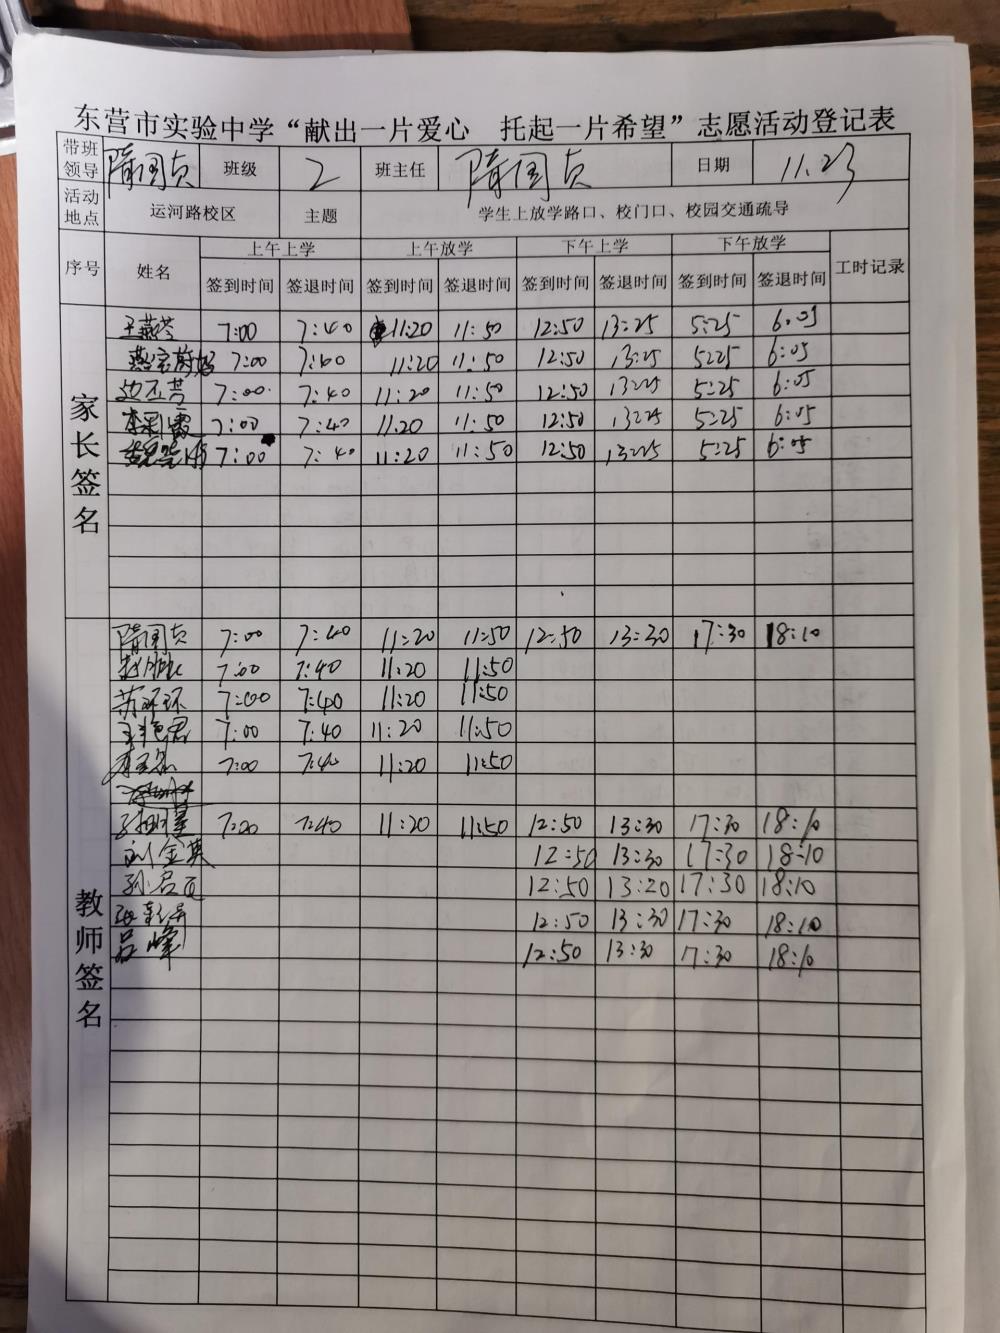 东营市实验中学“献出一片爱心 托起一片希望”志愿活动登记表
带班领导 隋国贞 班级 2 班主任 隋国贞 日期 11.23
活动地点 运河路校区 主题 学生上放学路口、校门口、校园交通疏导
序号 姓名 上午上学 上午放学 下午上学 下午放学 工时记录
签到时间 签退时间 签到时间 签退时间 签到时间 签退时间 签到时间 签退时间
家长签名
王燕 7:00 7:40 11:20 11:50 12:50 13:25 5:25 6:05
7:00 7:40 11:20 11:50 12:50 13:25 5:25 6:05
7:00 7:40 11:20 11:50 12:50 13:25 5:25 6:05
李彩霞 7:00 7:40 11:20 11:50 12:50 13:25 5:25 6:05
7:00 7:40 11:20 11:50 12:50 13:25 5:25 6:05
教师签名
隋国贞 7:00 7:40 11:20 11:50 12:50 13:30 17:30 18:10
7:00 7:40 11:20 11:50
苏环环 7:00 7:40 11:20 11:50
王艳君 7:00 7:40 11:20 11:50
李 7:00 7:40 11:20 11:50
7:00 7:40 11:20 11:50 12:50 13:30 17:30 18:10
刘金英 12:50 13:30 17:30 18:10
孙 12:50 13:20 17:30 18:10
张 12:50 13:30 17:30 18:10
吕峰 12:50 13:30 17:30 18:10